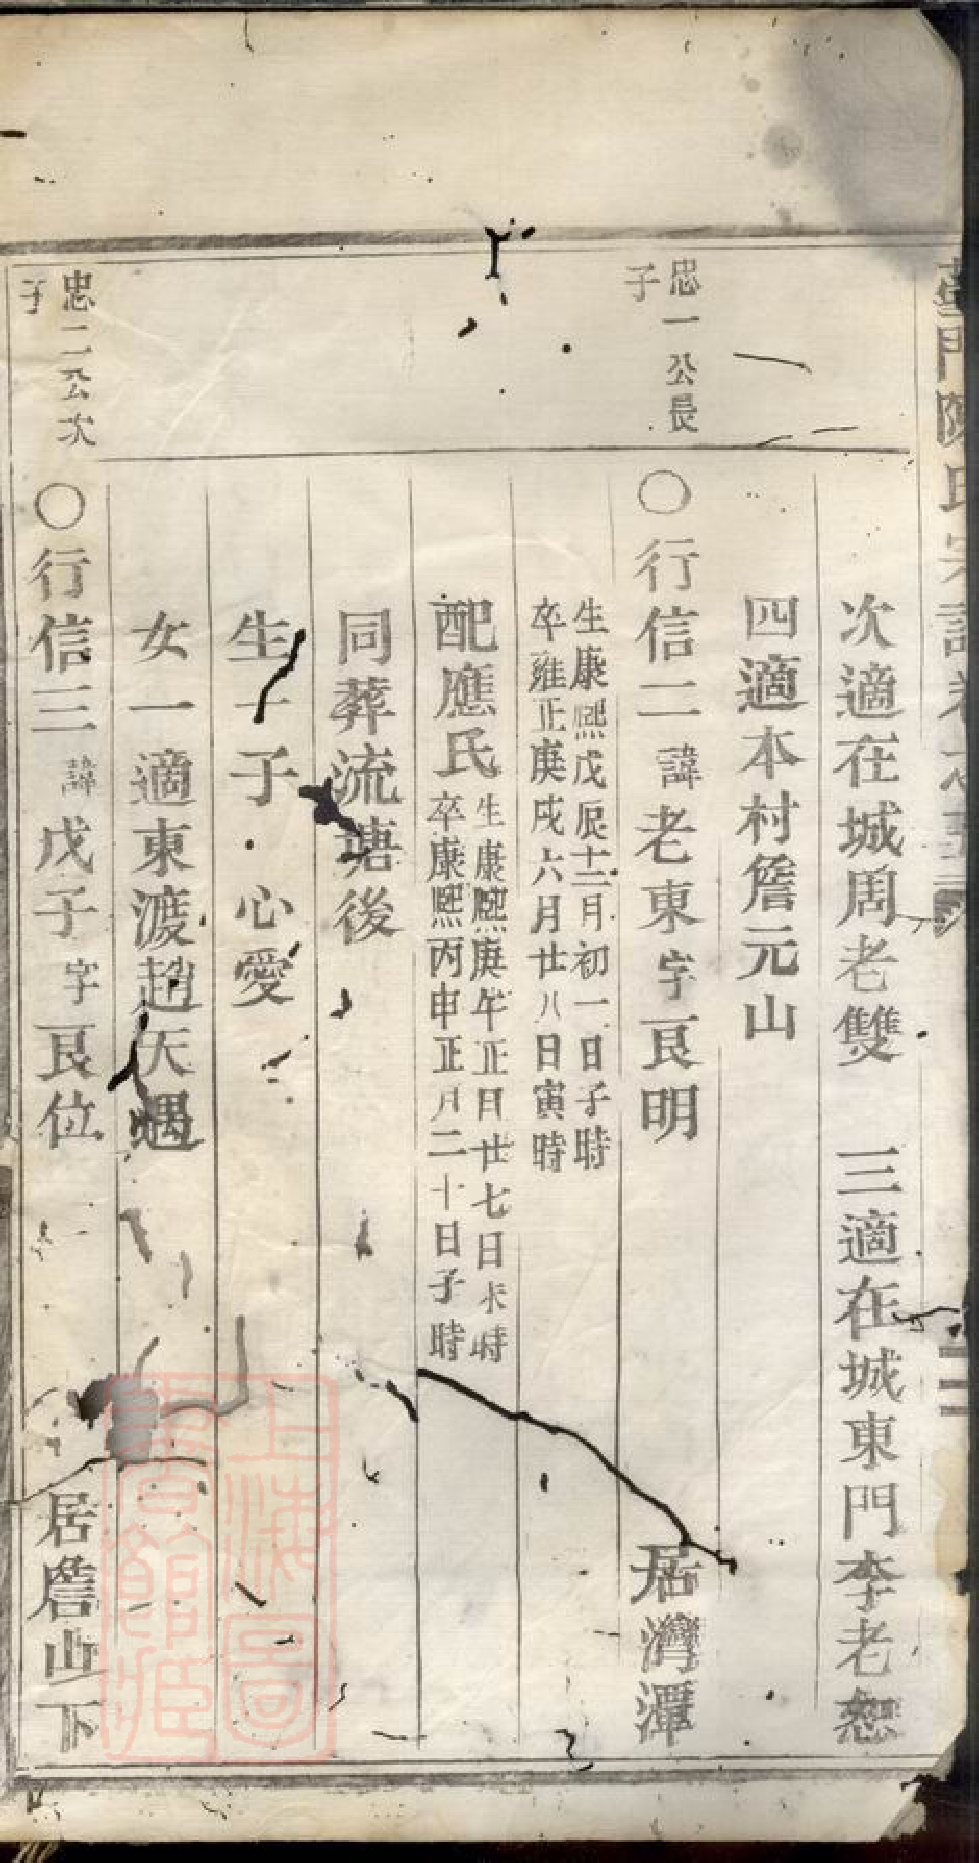 次適在城周老雙 三適在城東門李老恕
四適本村詹元山
忠一公長
子
〇行信二諱老東字艮明 居灣潭
生康熙戊辰十二月初一日子時
卒雍正庚戌六月廿八日寅時
配應氏
生康熙庚午正月廿七日未時
卒康熙丙申正月二十日子時
同葬流塘後
生一子 心愛
女一適東渡趙天遇
忠二公次
子
〇行信三諱戊子字艮位 居詹山下
上海圖
書館藏